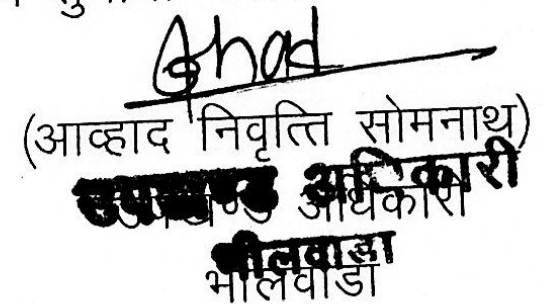 (आव्हाद निवृत्ति सोमनाथ)
उपखण्ड अधिकारी
उपखण्ड अधिकारी
भीलवाडा
भीलवाडा